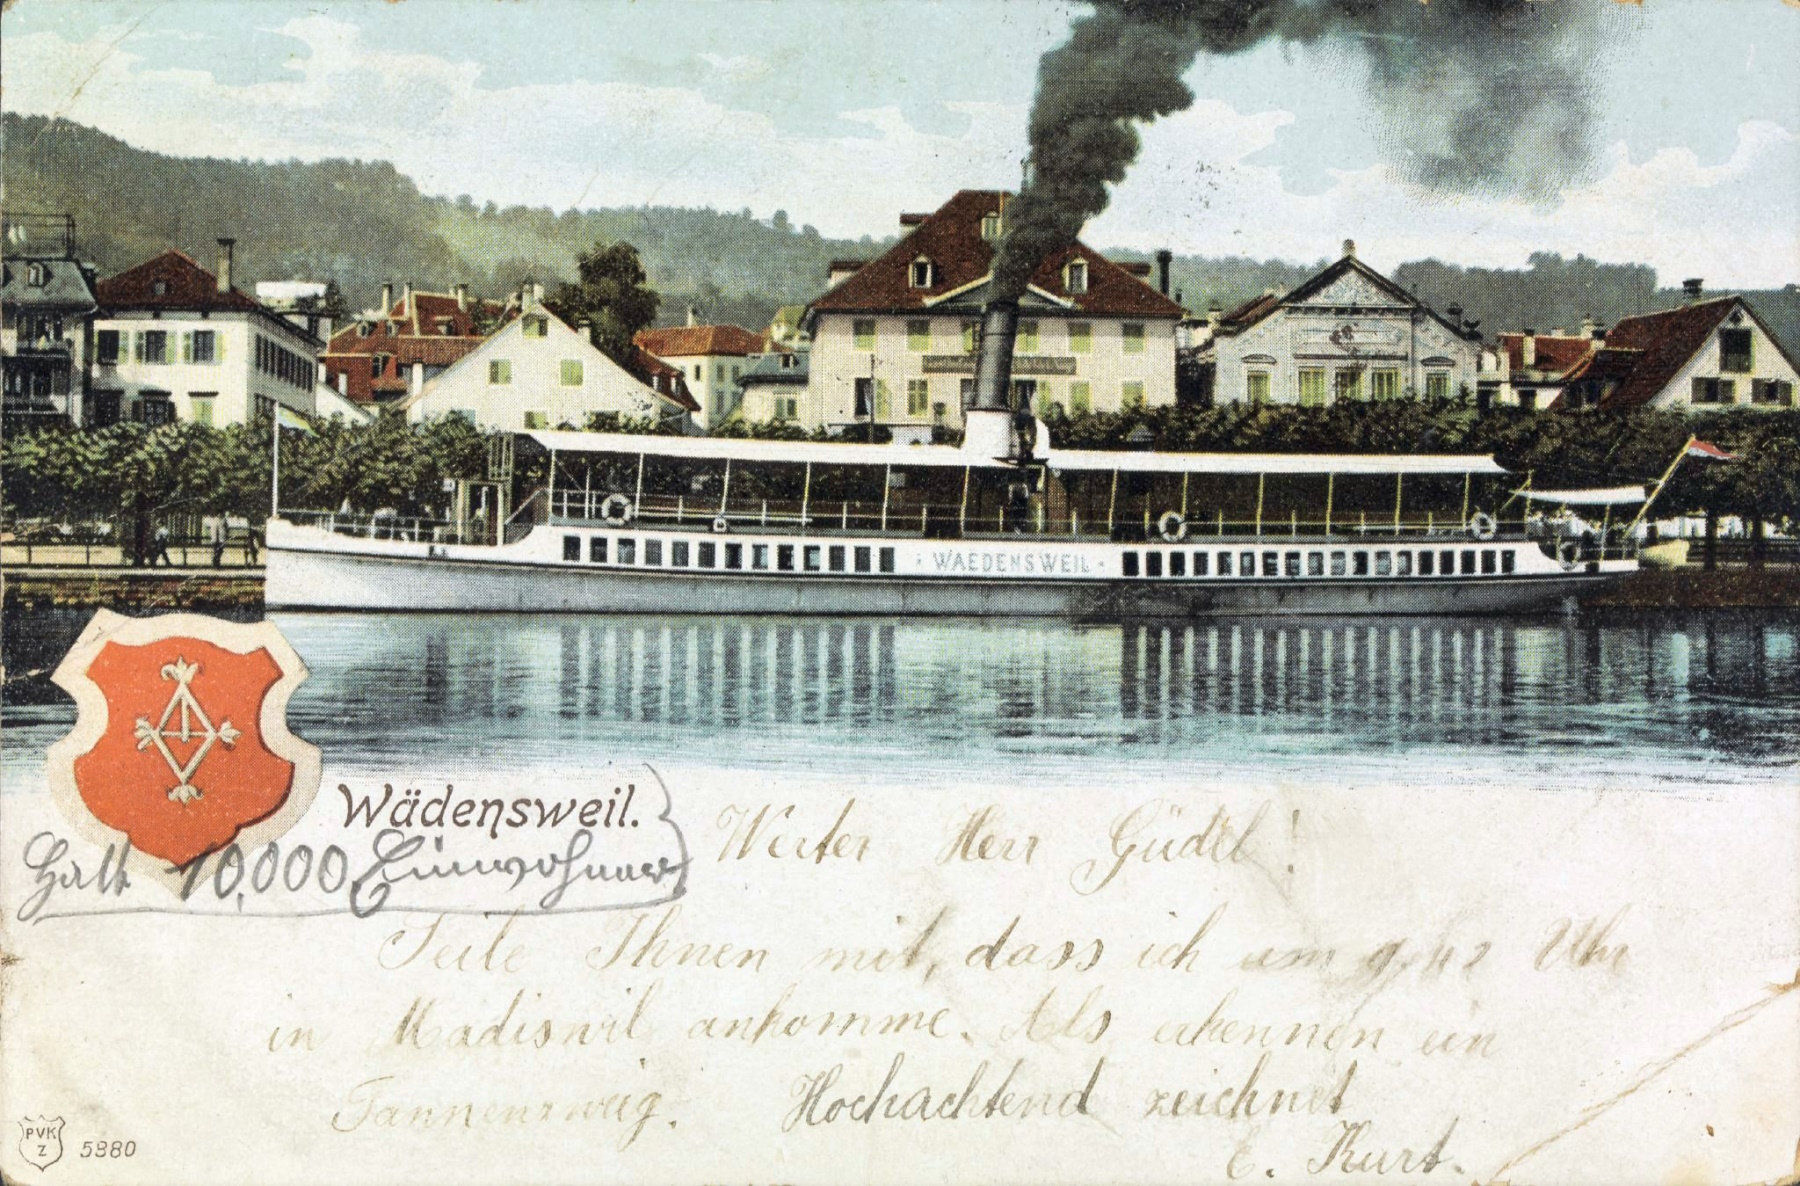 WAEDENSWEIL
Wädensweil.
Hatt 10,000 Einwohner
Werter Herr Güdel!
Teile Ihnen mit, dass ich um 9.42 Uhr
in Madiswil ankomme. Als erkennen ein
Tannenzweig. Hochachtend zeichnet
E. Kurt.
PVK
Z
5980